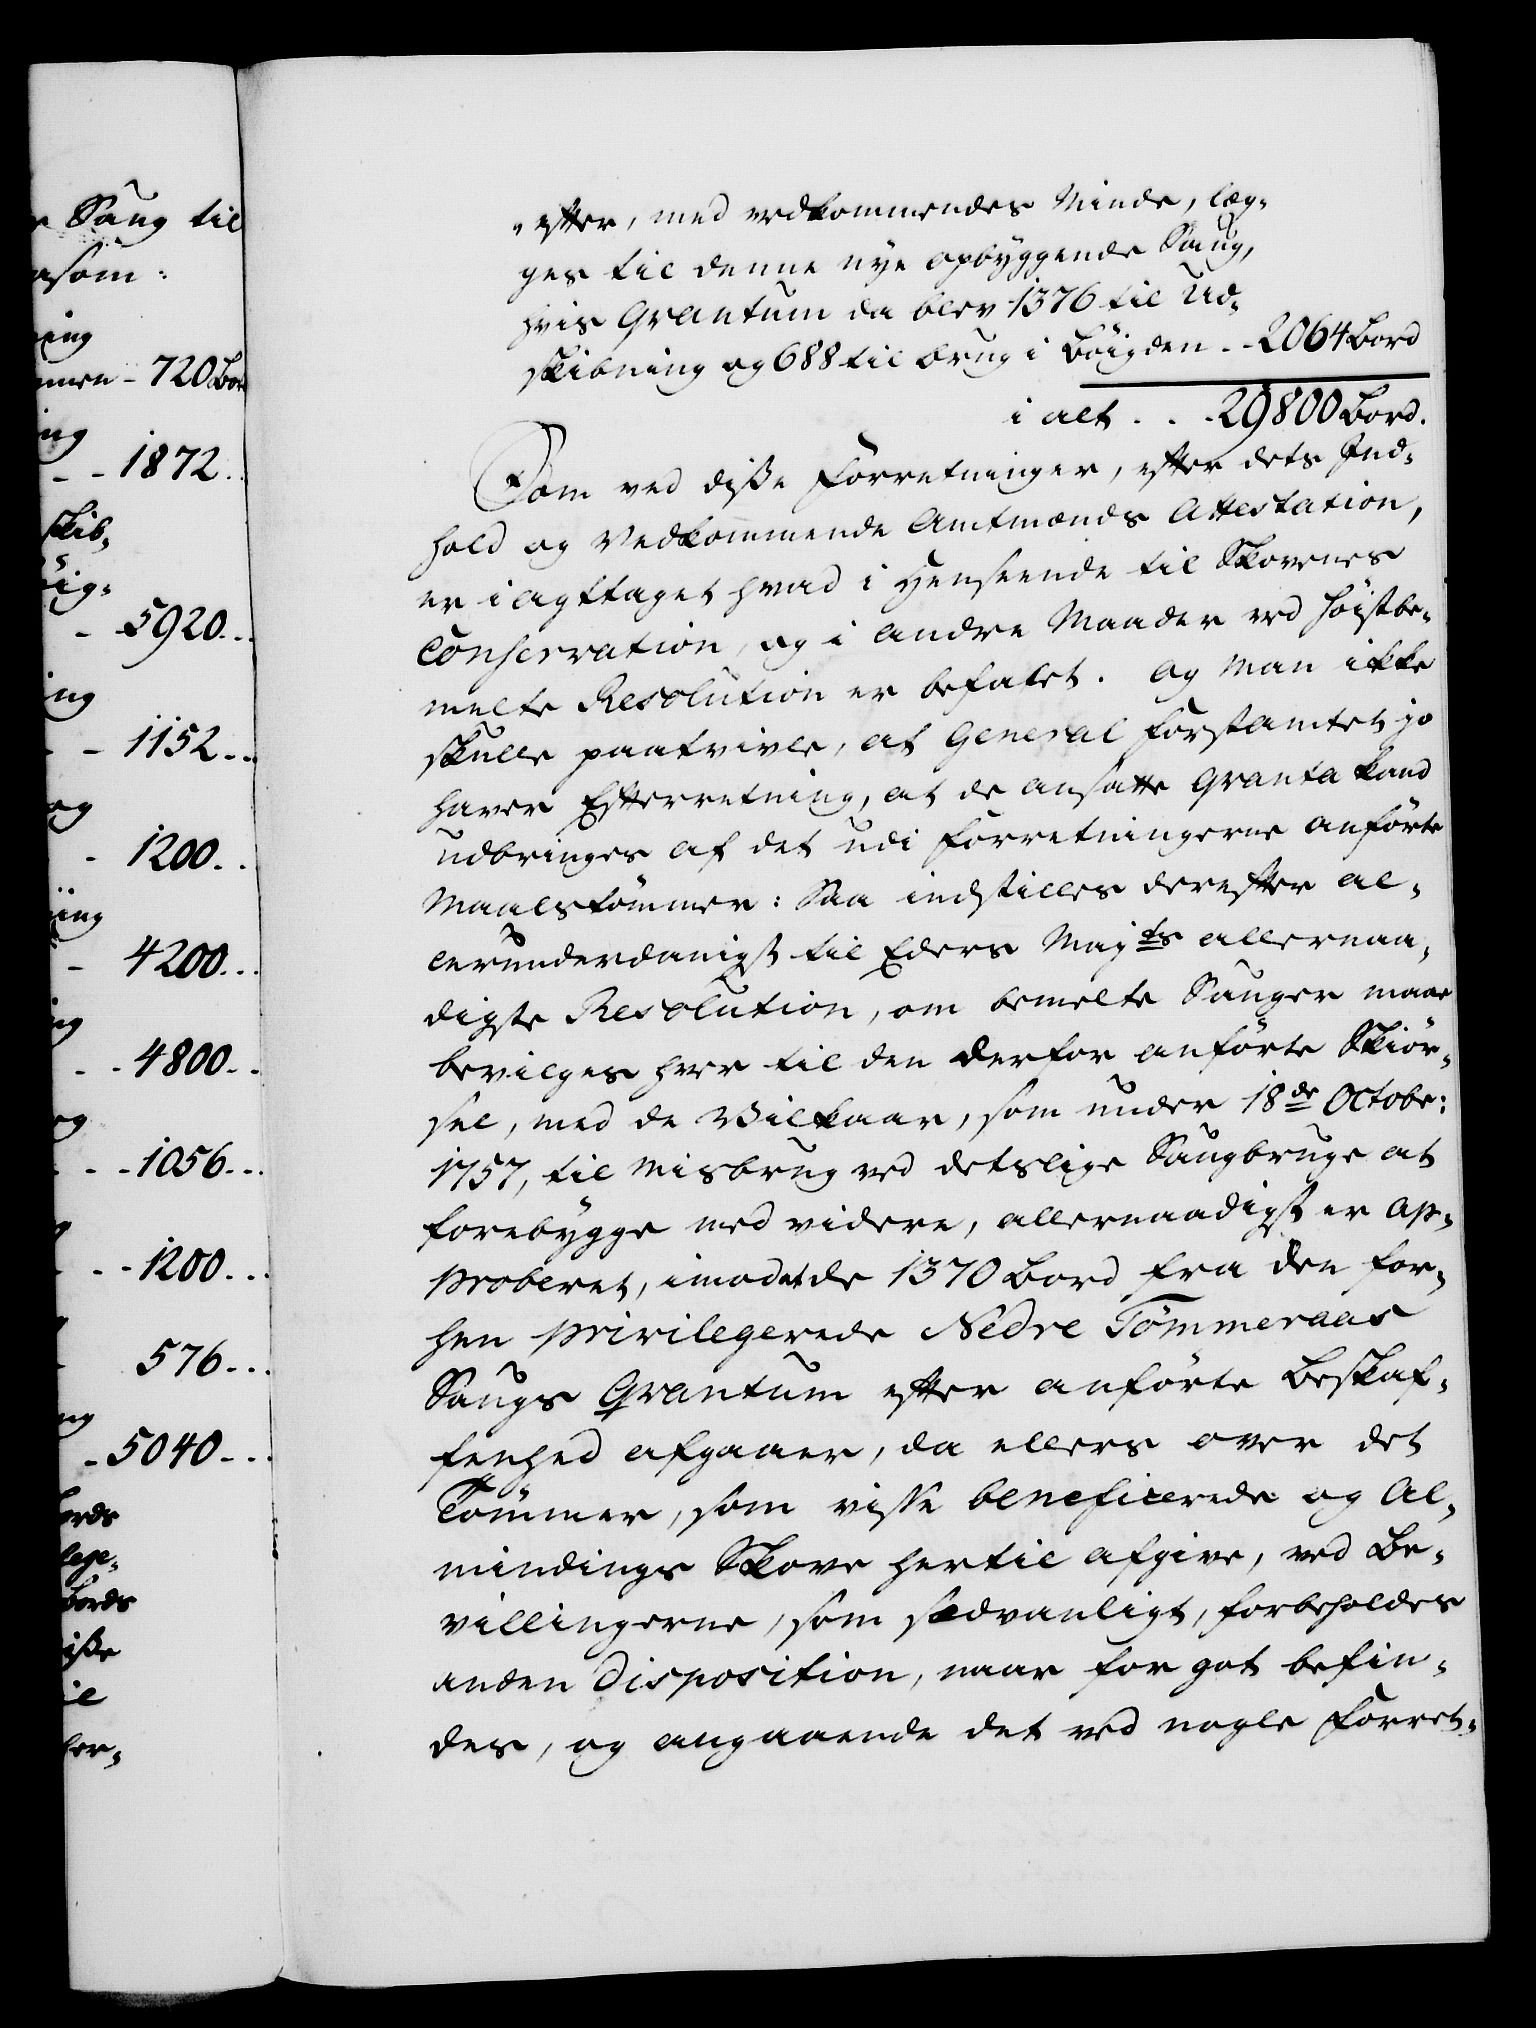 r Saug til
asom:
ning
mmen - 720 Bor
ing
- - 1872..
skib-
öig-
- 5920...
ing
- - 1152...
og
- 1200...
ning
- 4200...
ing
- - 4800...
og
- - 1056...
- - 1200...
576...
ng
- 5040...
bords
lege-
bords
isse
il
her-
efter, med vedkommendes Minde, læg-
ges til denne nye opbyggende Saug,
hvis Qvantum da blev 1376 til Ud-
skibning og 688 til brug i Böigden - - 2064 Bord
i alt . . . 29800 Bord.
Som ved disse Forretninger, efter dets Ind-
hold og Vedkommende Amtmands Attestation,
er iagttaget hvad i Henseende til Skovenes
Conservation, og i andre Maader ved höistbe-
melte Resolution er befalet. Og man ikke
skulle paatvivle, at General Forstamtet jo
haver Efterretning, at de ansatte Qvanta kand
udbringes af det udi Forretningerne anförte
Maalstömmer: Saa indstilles derefter al-
lerunderdanigst til Eders Majts allernaa-
digste Resolution, om bemelte Sauger maae
bevilges hver til den derfor anförte Skiör-
sel, med de Vilkaar, som under 18de Octobr:
1757, til Misbrug ved detslige Saugbruge at
forebygge med videre, allernaadigst er ap-
proberet, imod at de 1370 Bord fra den for-
hen privilegerede Nedre Tömmeraas
Saugs Qvantum efter anförte Beskaf-
fenhed afgaaer, da ellers over det
Tömmer, som visse beneficerede og Al-
mindings Skove hertil afgive, ved Be-
villingerne, som sædvanligt, forbeholdes
anden Disposition, naar for got befin-
des, og angaaende det ved nogle Forret-